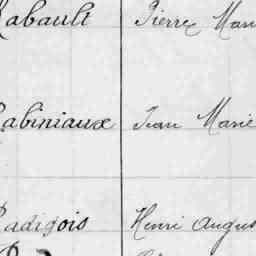 Rabault Pierre Mari
Rabiniaux Jean Marie
Radigois Henri Augus